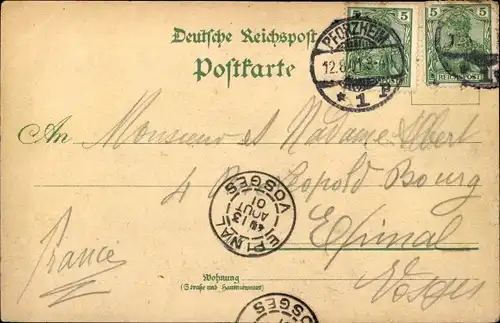 Deutsche Reichspost
Postkarte
5 5
5 5
REICHSPOST
PFORZHEIM
12.8.01
* 1
An Monsieur et Madame Albert
4 Léopold Bourg
Epinal
Vosges
France
EPINAL
13
AOUT
01
VOSGES
Wohnung
(Straße und Hausnummer)
VOSGES